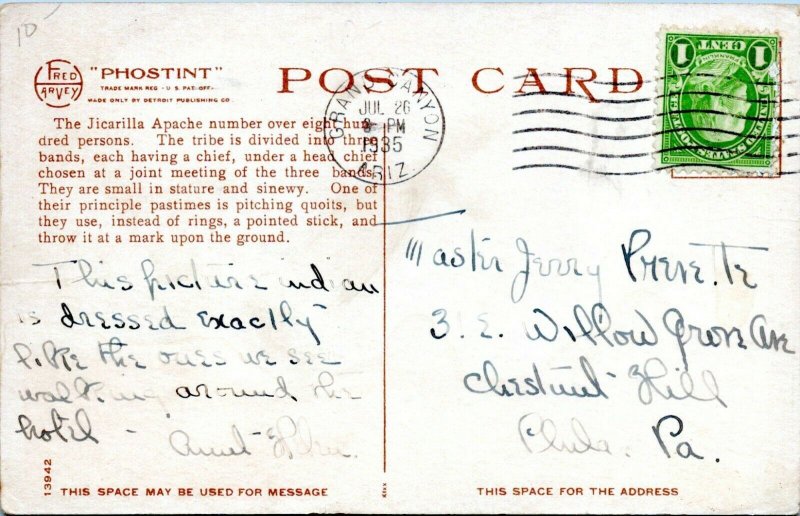 10-
FRED HARVEY
"PHOSTINT"
TRADE MARK REG - U.S. PAT. OFF.
MADE ONLY BY DETROIT PUBLISHING CO.
POST CARD
GRAND CANYON
JUL 26
PM
1935
ARIZ.
1 CENT 1
The Jicarilla Apache number over eight hun-
dred persons. The tribe is divided into three
bands, each having a chief, under a head chief
chosen at a joint meeting of the three bands.
They are small in stature and sinewy. One of
their principle pastimes is pitching quoits, but
they use, instead of rings, a pointed stick, and
throw it at a mark upon the ground.
This picture indian
is dressed exactly
like the ones we see
walking around the
hotel -
Aunt
Master Jerry Prevette
3. E. Willow Grove Ave
Chestnut Hill
Phila. Pa.
13942
THIS SPACE MAY BE USED FOR MESSAGE
THIS SPACE FOR THE ADDRESS